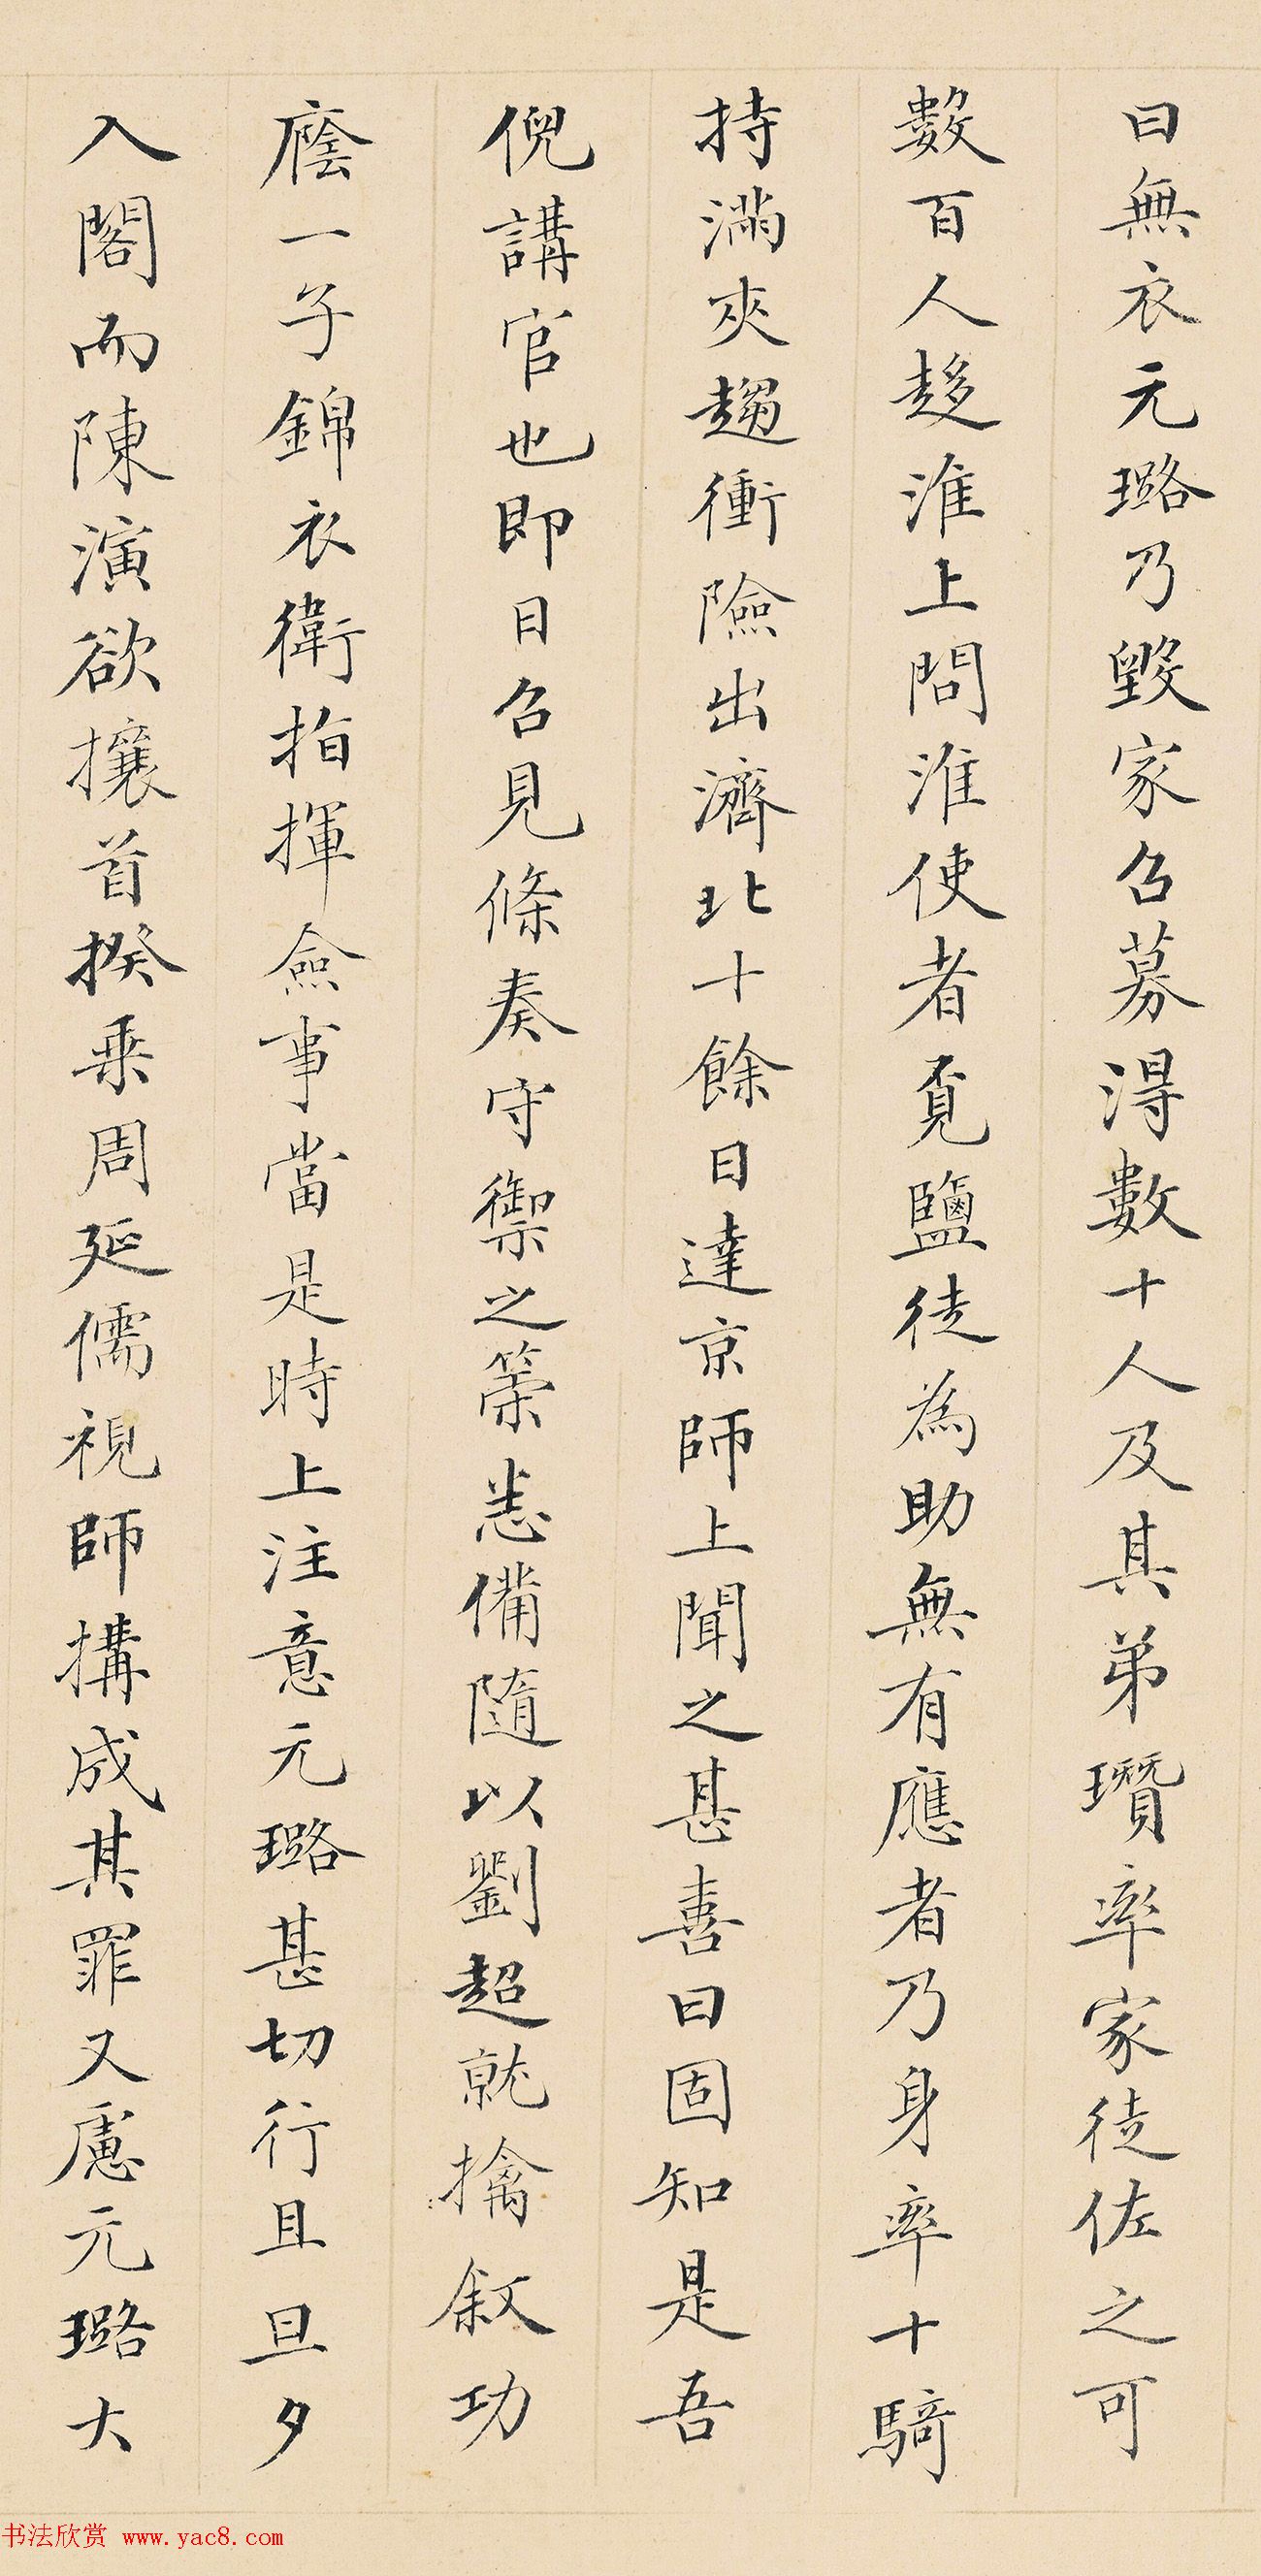 曰無衣元璐乃毀家召募得數十人及其弟瓚率家徒佐之可
數百人趍淮上問淮使者覔鹽徒為助無有應者乃身率十騎
持滿夾趨衝險出濟北十餘日達京師上聞之甚喜曰固知是吾
倪講官也即日召見條奏守禦之策悉備隨以劉超就擒敘功
廕一子錦衣衛指揮僉事當是時上注意元璐甚切行且旦夕
入閣而陳演欲攘首揆乗周延儒視師搆成其罪又慮元璐大
书法欣赏 www.yac8.com